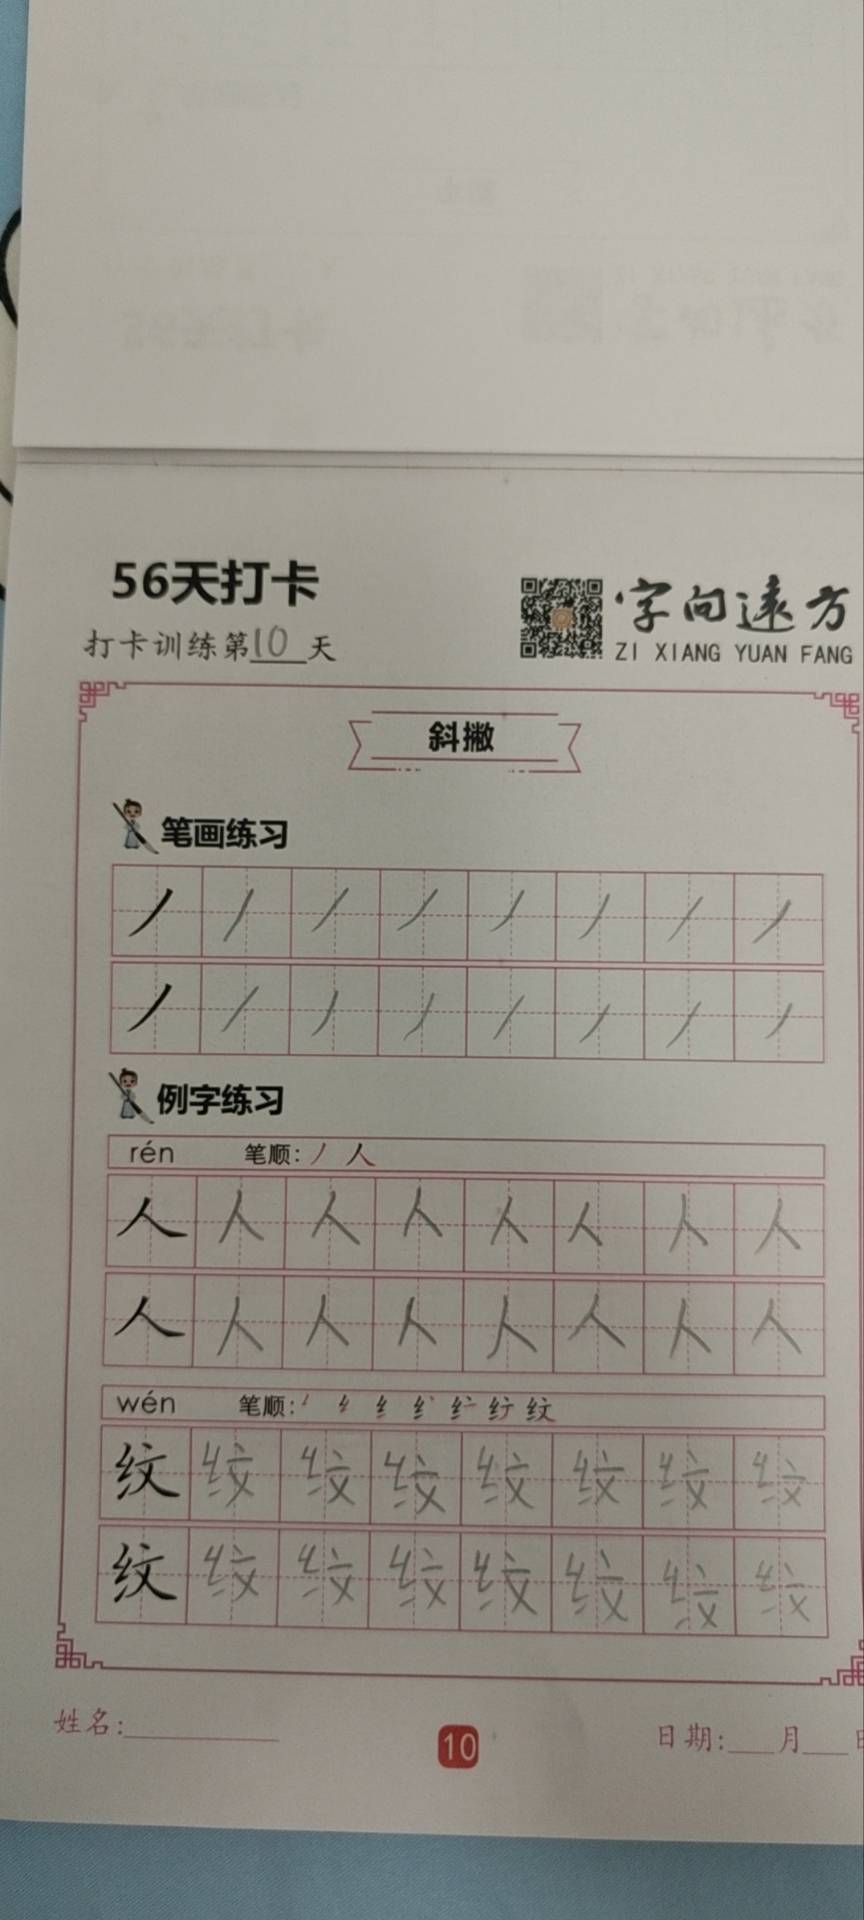 56天打卡
字向远方
打卡训练第10天
ZI XIANG YUAN FANG
斜撇
笔画练习
丿丿丿丿丿丿丿丿
丿丿丿丿丿丿丿丿
例字练习
rén 笔顺:丿 人
人人人人人人人人
人人人人人人人人
wén 笔顺:
纹纹纹纹纹纹纹纹
纹纹纹纹纹纹纹纹
姓名:
10
日期: 月